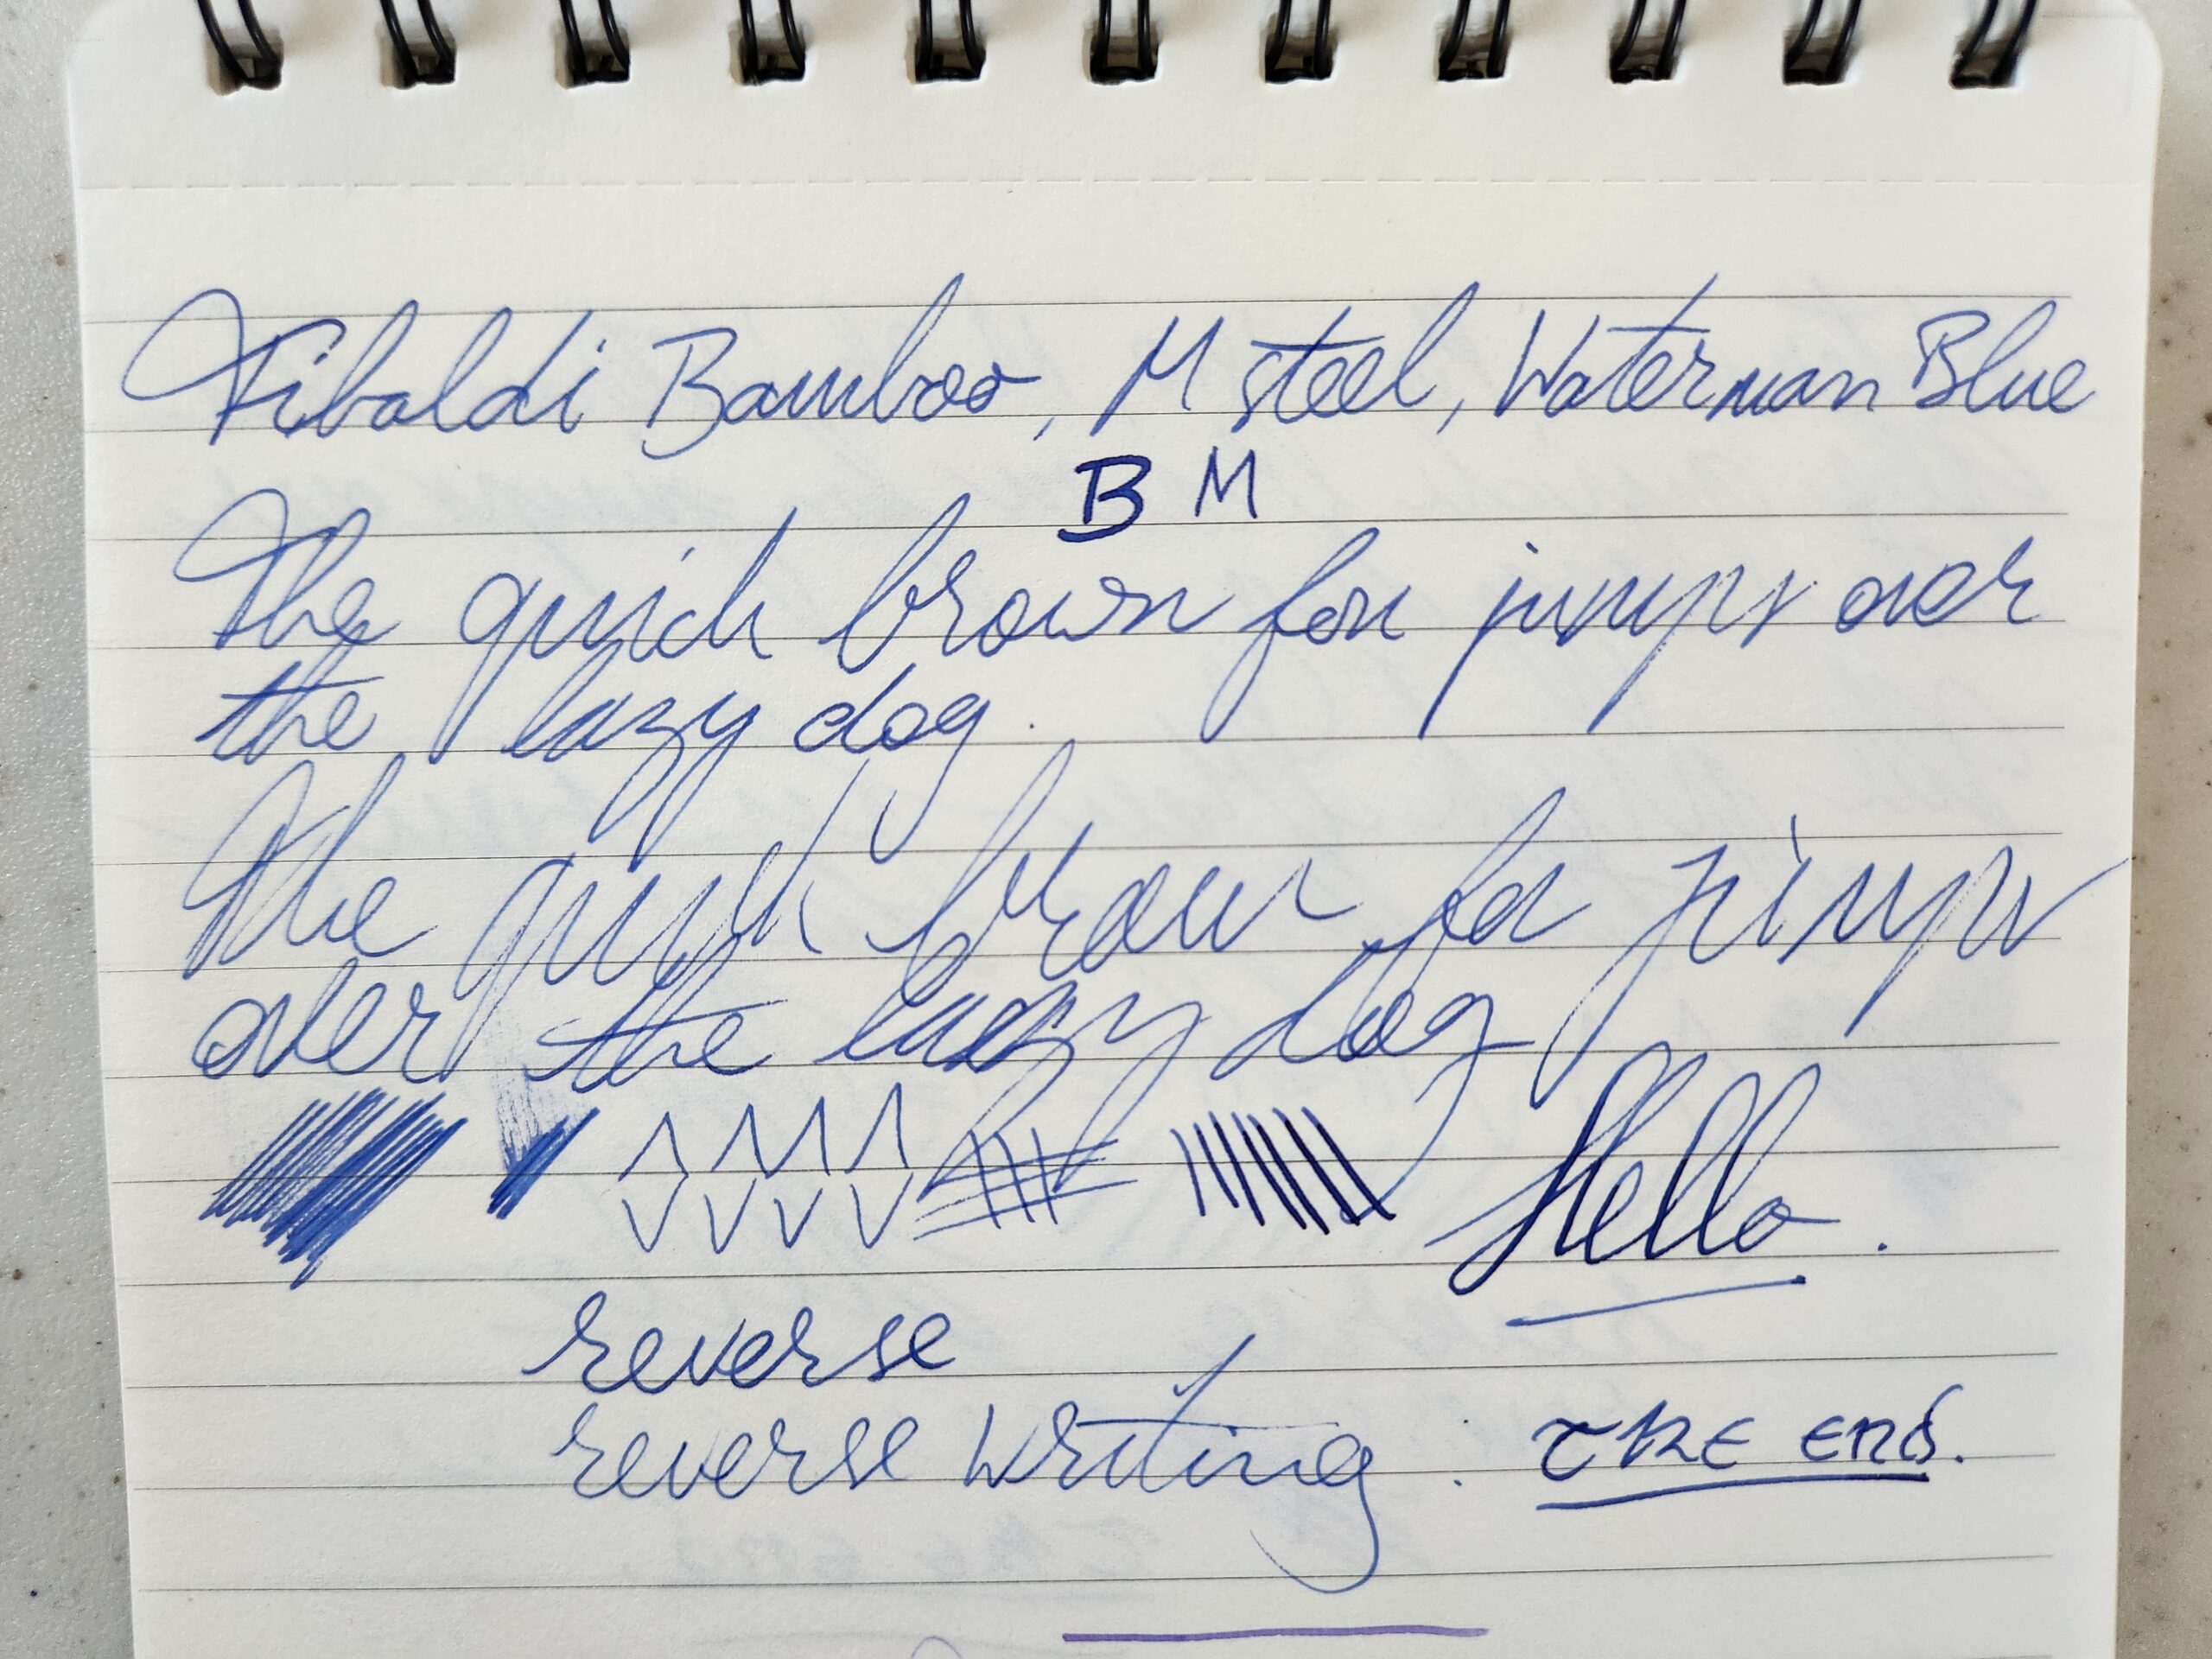 Tibaldi Bamboo, M steel, Waterman Blue
B M
The quick brown fox jumps over
the lazy dog.
The quick brown fox jumps
over the lazy dog
Hello.
reverse
reverse writing. The end.